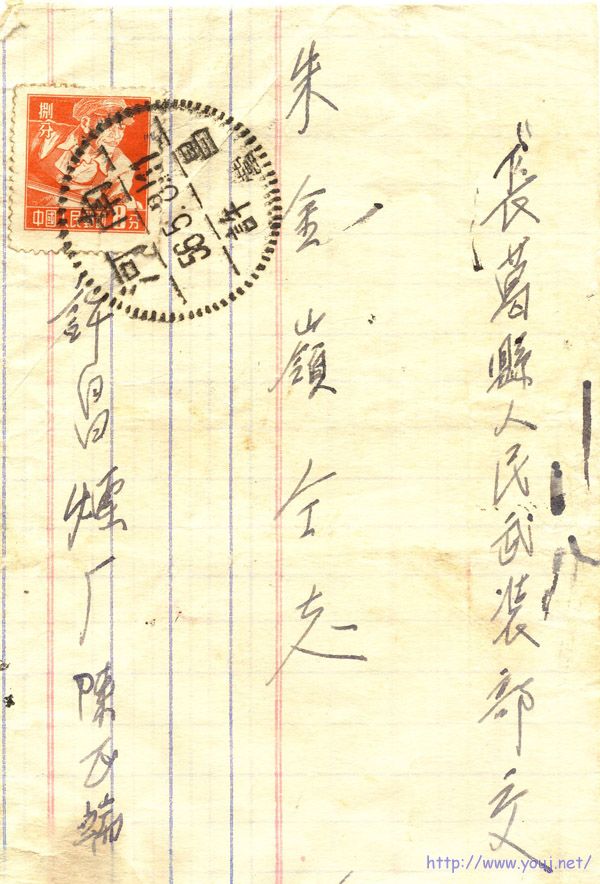 長葛縣人民武装部交
朱金嶺仝志
許昌煙厂陳
捌分
中國人民郵政8分
河南
56.5.
許昌
http://www.youj.net/